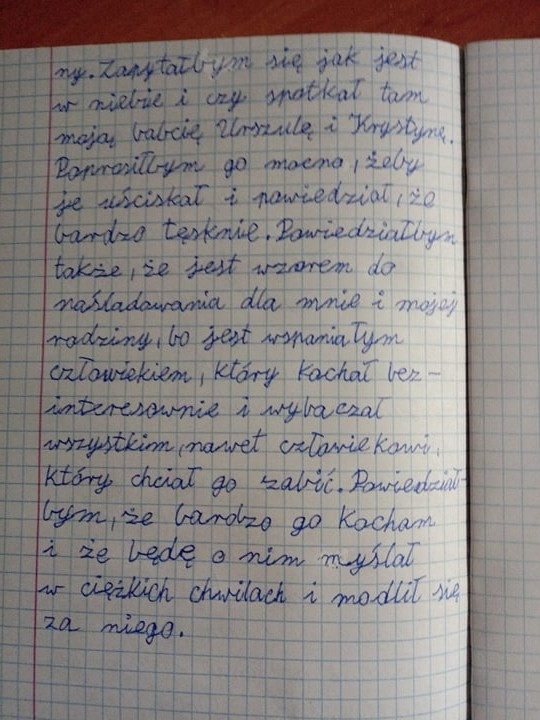 ny. Zapytałbym się jak jest
w niebie i czy spotkał tam
moją babcię Urszulę i Krystynę.
Poprosiłbym go mocno, żeby
je uściskał i powiedział, że
bardzo tęsknię. Powiedziałbym
także, że jest wzorem do
naśladowania dla mnie i mojej
rodziny, bo jest wspaniałym
człowiekiem, który kochał bez-
interesownie i wybaczał
wszystkim, nawet człowiekowi,
który chciał go zabić. Powiedział-
bym, że bardzo go kocham
i że będę o nim myślał
w ciężkich chwilach i modlił się
za niego.